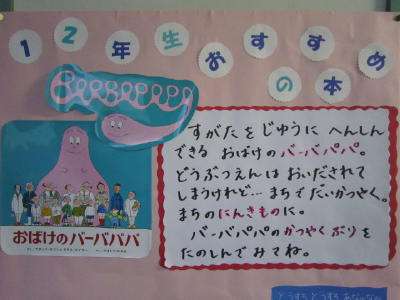 12年生おすすめ
の本
Barbapapa
おばけのバーバパパ
すがたをじゆうに へんしん
できる おばけの バーバパパ。
どうぶつえんは おいだされて
しまうけれど… まちで だいかつやく。
まちの にんきものに。
バーバパパの かつやく ぶりを
たのしんで みてね。